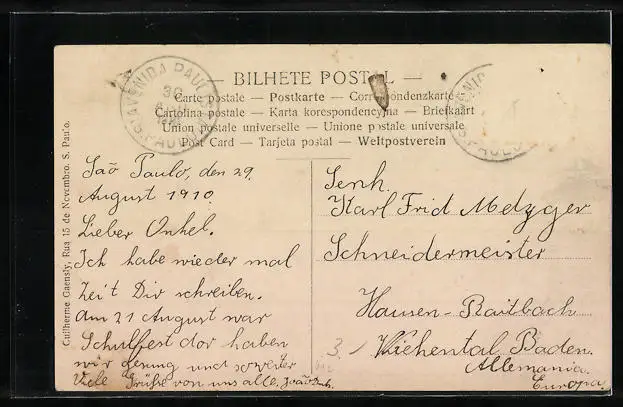 — BILHETE POSTAL —
Carte postale — Postkarte — Correspondenzkarte
Cartolina postale — Karta korespondencyjna — Briefkaart
Union postale universelle — Unione postale universale
Post Card — Tarjeta postal — Weltpostverein
AVENIDA PAULISTA
30
S. PAULO
S. PAULO
Guilherme Gaensly, Rua 15 de Novembro. S. Paulo.
São Paulo, den 29.
August 1910.
Lieber Onkel.
Ich habe wieder mal
Zeit Dir schreiben.
Am 21 August war
Schulfest dor haben
wir gesung und so weiter
Viele Grüße von uns alle,
Senh.
Karl Frid Metzger
Schneidermeister
Hausen-Raitbach
3. Wiehental Baden.
Allemania.
Europa.